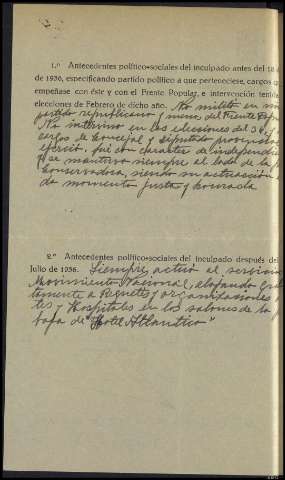 1.º Antecedentes político-sociales del inculpado antes del 18
de 1936, especificando partido político a que perteneciese, cargos q
empeñase con éste y con el Frente Popular, e intervención tenida
elecciones de Febrero de dicho año. No militó en
partido republicano y menos del Frente Popu
No intervino en las elecciones del 36,
cargos de Concejal y Diputado provincial
ejerció, fué con caracter de independie
y se mantuvo siempre al lado de la
Conservadora, siendo su actuación
do momento justa y honrada
2.º Antecedentes político-sociales del inculpado después del
Julio de 1936. Siempre actuó al servicio
Movimiento Nacional, alojando gra
tamente a Requetés y organizaciones
tes y Hospitales en los salones de la
baja de "Hotel Atlantico"